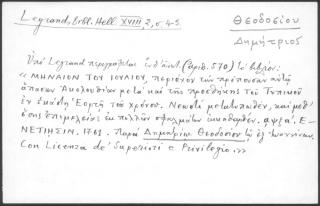 Legrand, Bibl. Hell XVIII 2, σ. 4-5
Θεοδοσίου
Δημήτριος
Ὑπὸ Legrand περιγράφεται (ἀριθ. 570) τὸ βιβλίον:
« ΜΗΝΑΙΟΝ ΤΟΥ ΙΟΥΛΙΟΥ, περιέχον τὴν πρέπουσαν αὐτῷ
ἅπασαν Ἀκολουθίαν μετὰ καὶ τῆς προσθήκης τοῦ Τυπικοῦ
ἐν ἑκάστῃ Ἑορτῇ τοῦ χρόνου. Νεωστὶ μετατυπωθὲν, καὶ μεθ'
ὅσης ἐπιμελείας ἐκ πολλῶν σφαλμάτων ἐκκαθαρθέν. αψξα'. Ε-
ΝΕΤΙΗΣΙΝ. 1761. Παρὰ Δημητρίῳ Θεοδοσίου τῷ ἐξ Ἰωαννίνων.
Con Licenza de' Superiori e Privilegio. »